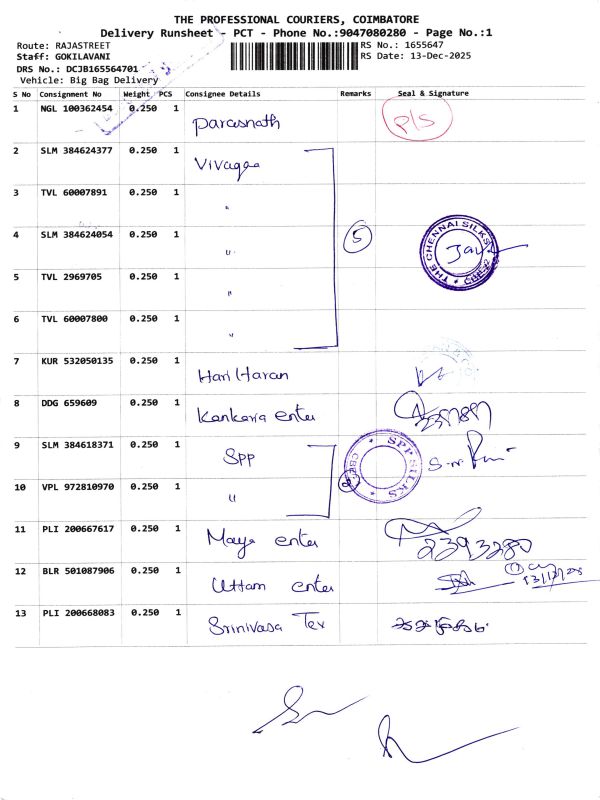 THE PROFESSIONAL COURIERS, COIMBATORE
Delivery Runsheet - PCT - Phone No.:9047080280 - Page No.:1
Route: RAJASTREET
RS No.: 1655647
Staff: GOKILAVANI
RS Date: 13-Dec-2025
DRS No.: DCJB165564701
Vehicle: Big Bag Delivery
S No Consignment No Weight PCS Consignee Details Remarks Seal & Signature
1 NGL 100362454 0.250 1 Parasnath P/S
2 SLM 384624377 0.250 1 Vivagaa
3 TVL 60007891 0.250 1 "
4 SLM 384624054 0.250 1 " 5 THE CHENNAI SILKS
5 TVL 2969705 0.250 1 "
6 TVL 60007800 0.250 1 "
7 KUR 532050135 0.250 1 Hari Haran
8 DDG 659609 0.250 1 Kankaria enter
9 SLM 384618371 0.250 1 Spp SPP SILKS
10 VPL 972810970 0.250 1 " 2
11 PLI 200667617 0.250 1 Maya enter
12 BLR 501087906 0.250 1 Uttam enter
13 PLI 200668083 0.250 1 Srinivasa Tex